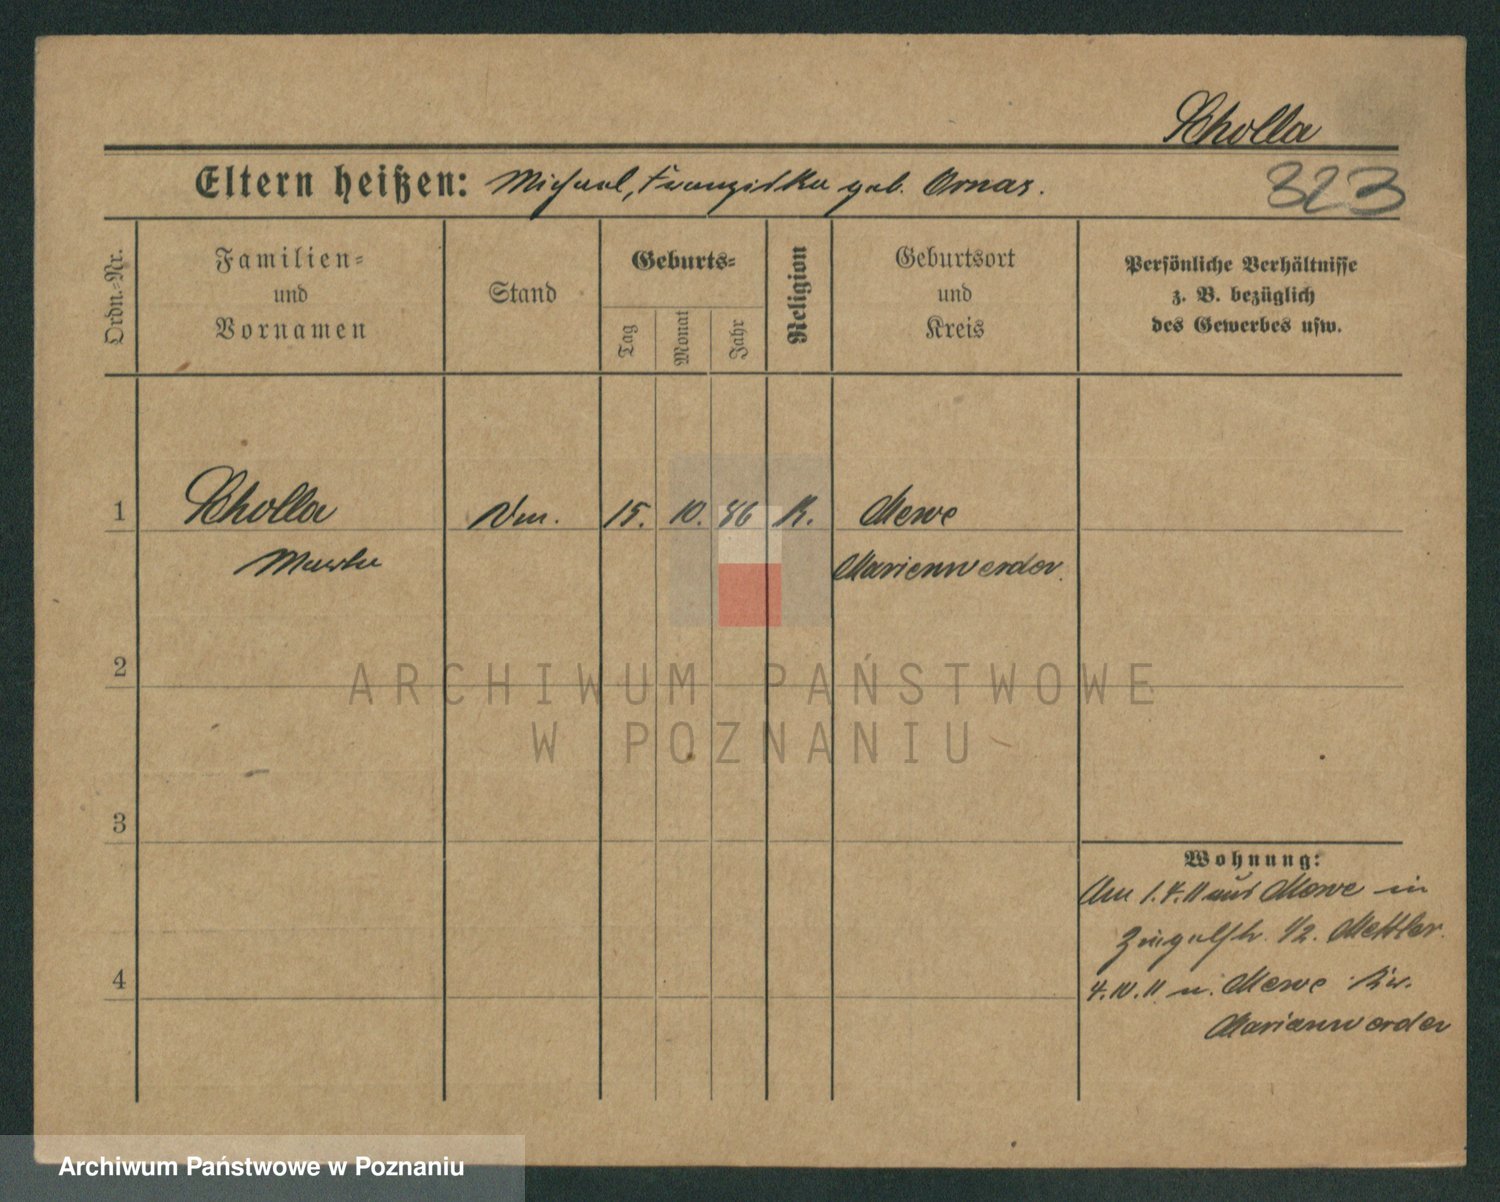 Scholla
Eltern heißen: Michael, Franziska geb. Ornas.
323
Ordn.-Nr.
Familien-
und
Vornamen
Stand
Geburts-
Tag
Monat
Jahr
Religion
Geburtsort
und
Kreis
Persönliche Verhältnisse
z. B. bezüglich
des Gewerbes usw.
1 Scholla 15. 10. 86 K. Mewe
Marienwerder.
2
ARCHIWUM PAŃSTWOWE
W POZNANIU
3
Wohnung:
1.4.11 aus Mewe in
1/2. Mettler.
4
4.10.11 n. Mewe Krs.
Marienwerder
Archiwum Państwowe w Poznaniu